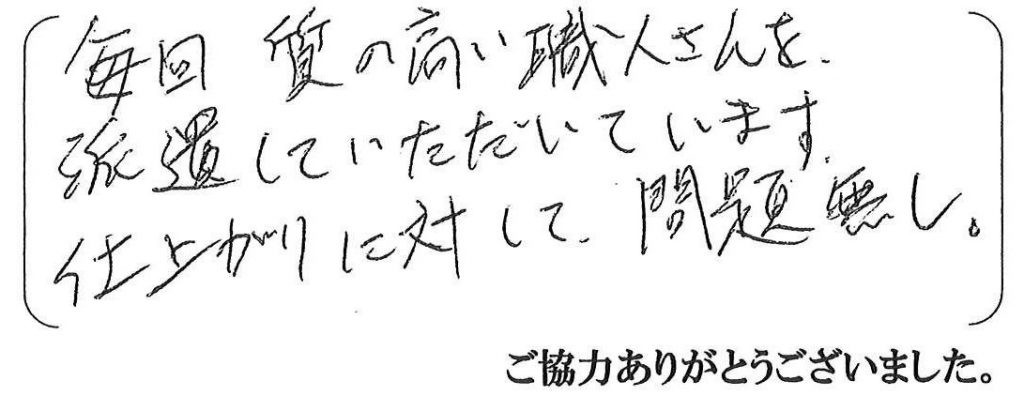 毎回 質の高い職人さんを、
派遣していただいています。
仕上がりに対して、問題無し。
ご協力ありがとうございました。